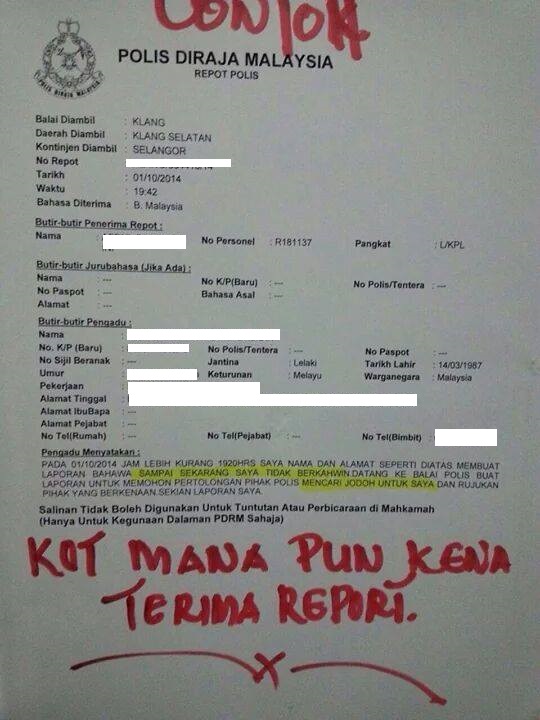 CONTOH
POLIS DIRAJA MALAYSIA
REPOT POLIS
POLIS DIRAJA MALAYSIA
Balai Diambil : KLANG
Daerah Diambil : KLANG SELATAN
Kontinjen Diambil : SELANGOR
No Repot :
Tarikh : 01/10/2014
Waktu : 19:42
Bahasa Diterima : B. Malaysia
Butir-butir Penerima Repot :
Nama : No Personel : R181137 Pangkat : L/KPL
Butir-butir Jurubahasa (Jika Ada) :
Nama : --- No K/P(Baru) : --- No Polis/Tentera : ---
No Paspot : --- Bahasa Asal : ---
Alamat : ---
Butir-butir Pengadu :
Nama :
No. K/P (Baru) : No Polis/Tentera : --- No Paspot : ---
No Sijil Beranak : --- Jantina : Lelaki Tarikh Lahir : 14/03/1987
Umur : Keturunan : Melayu Warganegara : Malaysia
Pekerjaan :
Alamat Tinggal :
Alamat IbuBapa : ---
Alamat Pejabat : ---
No Tel(Rumah) : --- No Tel(Pejabat) : --- No Tel(Bimbit) :
Pengadu Menyatakan :
PADA 01/10/2014 JAM LEBIH KURANG 1920HRS SAYA NAMA DAN ALAMAT SEPERTI DIATAS MEMBUAT
LAPORAN BAHAWA SAMPAI SEKARANG SAYA TIDAK BERKAHWIN.DATANG KE BALAI POLIS BUAT
LAPORAN UNTUK MEMOHON PERTOLONGAN PIHAK POLIS MENCARI JODOH UNTUK SAYA DAN RUJUKAN
PIHAK YANG BERKENAAN.SEKIAN LAPORAN SAYA.
Salinan Tidak Boleh Digunakan Untuk Tuntutan Atau Perbicaraan di Mahkamah
(Hanya Untuk Kegunaan Dalaman PDRM Sahaja)
KOT MANA PUN KENA
TERIMA REPORT.